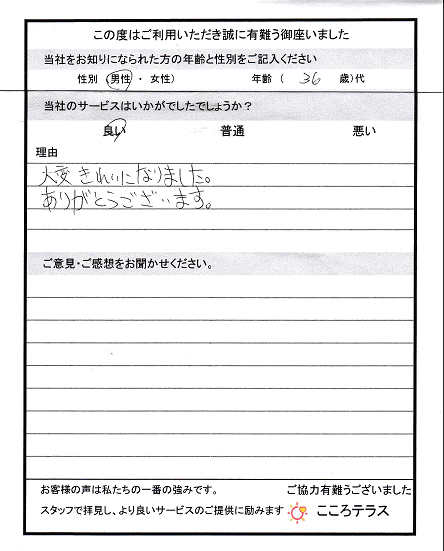 この度はご利用いただき誠に有難う御座いました
当社をお知りになられた方の年齢と性別をご記入ください
性別（男性・女性） 年齢（ 36 歳）代
当社のサービスはいかがでしたでしょうか？
良い 普通 悪い
理由
大変きれいになりました。
ありがとうございます。
ご意見・ご感想をお聞かせください。
お客様の声は私たちの一番の強みです。 ご協力有難うございました
スタッフで拝見し、より良いサービスのご提供に励みます こころテラス